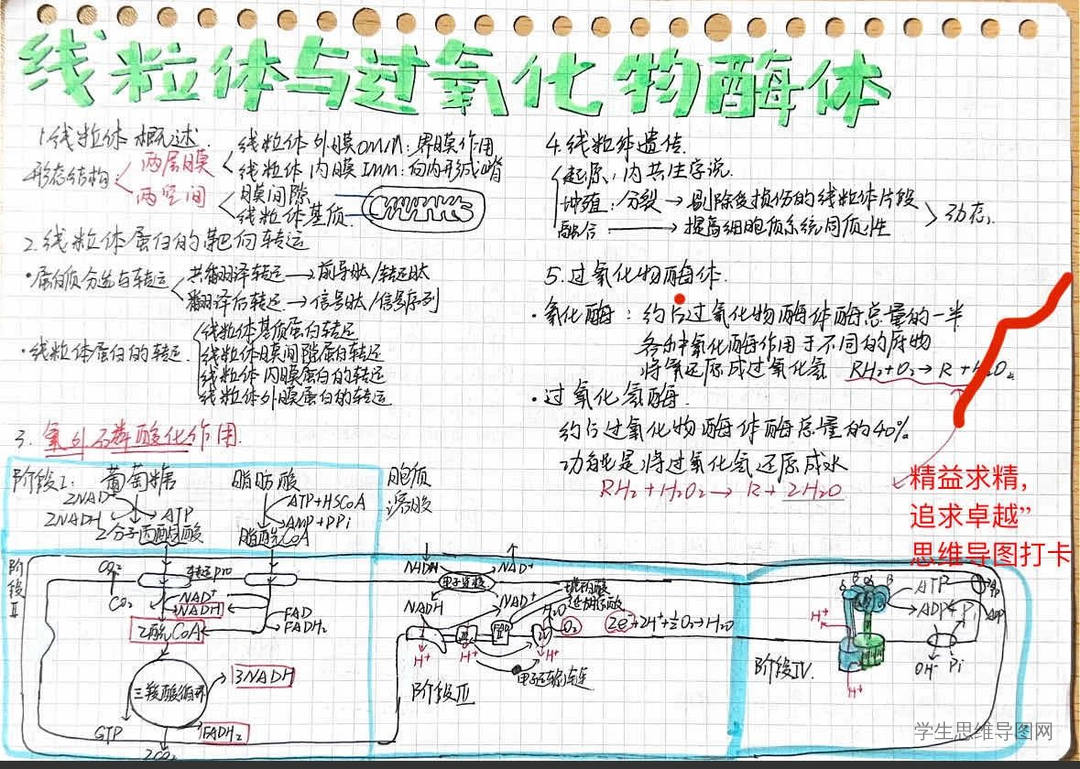 线粒体与过氧化物酶体
1.线粒体概述.
形态结构
两层膜
线粒体外膜OMM:界膜作用
线粒体内膜IMM:向内形成嵴
两空间
膜间隙
线粒体基质.
2.线粒体蛋白的靶向转运
·蛋白质分选与转运
共翻译转运→前导肽/转运肽
翻译后转运→信号肽/信号序列
·线粒体蛋白的转运.
线粒体基质蛋白转运
线粒体膜间隙蛋白转运
线粒体内膜蛋白的转运
线粒体外膜蛋白的转运
3.氧化磷酸化作用.
阶段I:
葡萄糖
2NAD
2NADH
ATP
2分子丙酮酸
脂肪酸
ATP+HSCoA
AMP+PPi
脂酰CoA
胞质
溶胶
阶段Ⅱ
CO₂
转运pro
NAD⁺
NADH
乙酰CoA
FAD
FADH₂
三羧酸循环
3NADH
FADH₂
GTP
2CO₂
NADH
NAD⁺
NADH
NAD⁺
H₂O
O₂
2e⁻+2H⁺+½O₂→H₂O
H⁺
H⁺
H⁺
电子运输链
阶段Ⅲ
4.线粒体遗传.
起源:内共生学说.
增殖:分裂→剔除受损伤的线粒体片段
融合→提高细胞质系统同质性
动态.
5.过氧化物酶体.
·氧化酶:约占过氧化物酶体酶总量的一半
各种氧化酶作用于不同的底物
将氧还原成过氧化氢 RH₂+O₂→R+H₂O₂
·过氧化氢酶.
约占过氧化物酶体酶总量的40%
功能是将过氧化氢还原成水
RH₂+H₂O₂→R+2H₂O
精益求精,
追求卓越”
思维导图打卡
H⁺
ATP
ADP
Pi
ADP
OH⁻
Pi
H⁺
阶段Ⅳ.
学生思维导图网